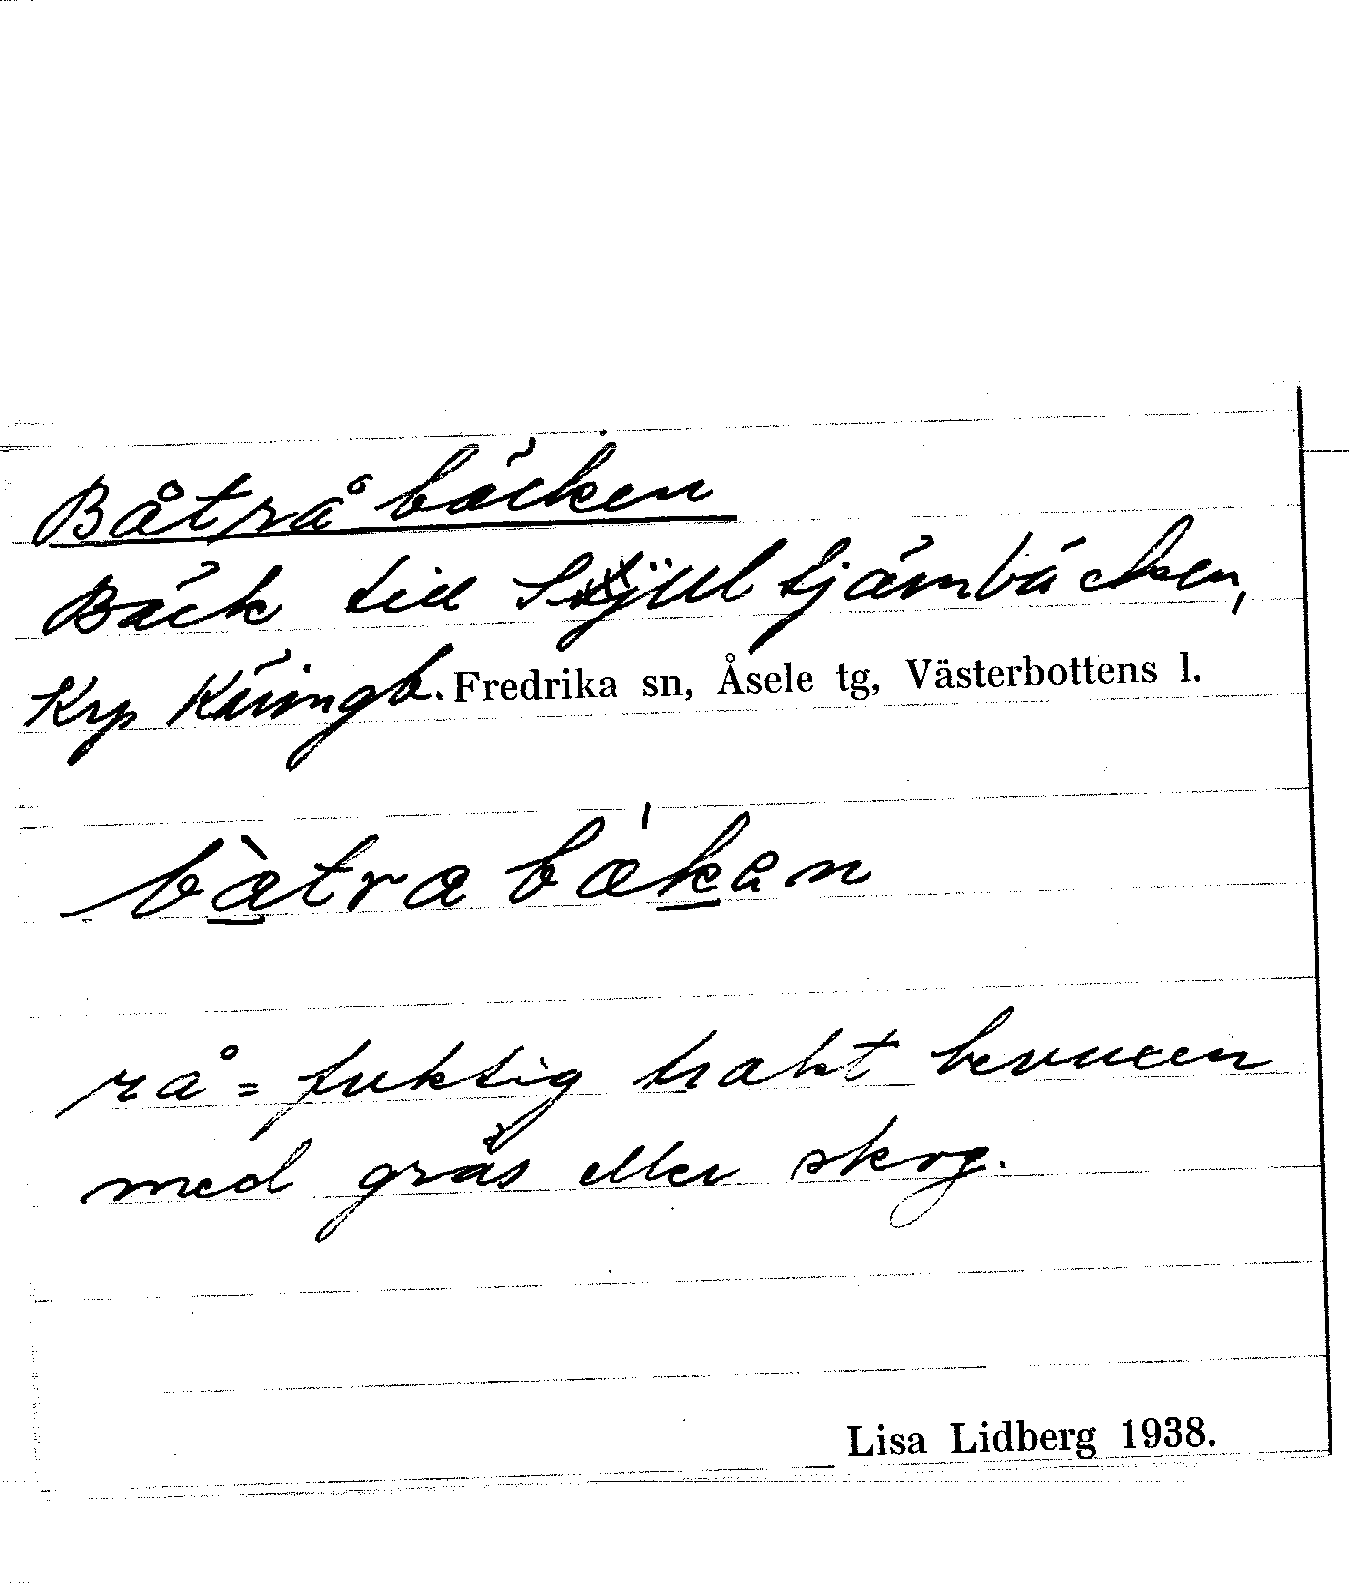 Båtråbäcken
Bäck till tjärnbäcken,
Krp Käringb. Fredrika sn, Åsele tg, Västerbottens l.
bàtra bækan
rå = fuktig trakt bevuxen
med gräs eller skog.
Lisa Lidberg 1938.